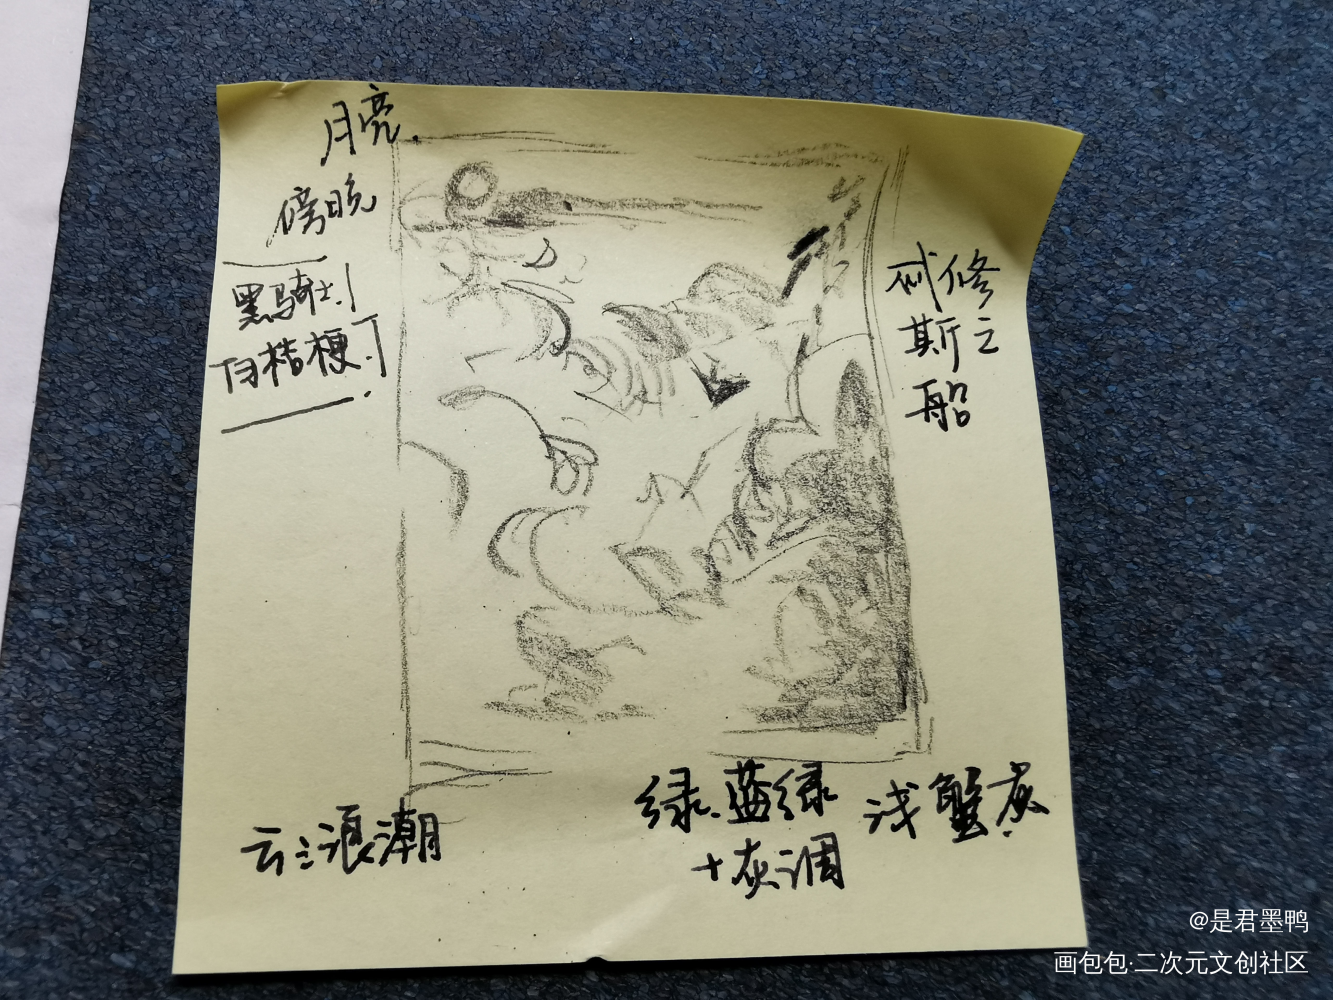 月亮.
傍晚
黑骑士.
白桔梗.
忒修
斯之
船
云浪潮
绿.蓝绿
+灰调
浅蟹灰
@是君墨鸭
画包包·二次元文创社区